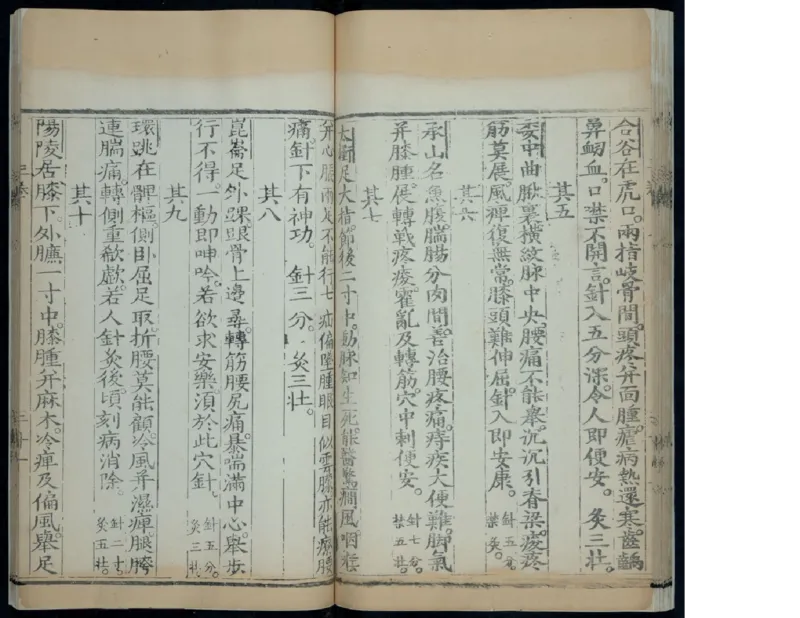 合谷在虎口。兩指岐骨間。頭疼并面腫。瘧病熱還寒。齒齲
鼻衂血。口噤不開言。針入五分深。令人即便安。 灸三壯。
其五
委中曲䐐裏。橫紋脉中央。腰痛不能舉。沉沉引脊梁。痠疼
筋莫展。風痺復無常。膝頭難伸屈。針入即安康。 針五分。
禁灸。
其六
承山名魚腹。腨腸分肉間。善治腰疼痛。痔疾大便難。脚氣
并膝腫。展轉戰疼痠。霍亂及轉筋。穴中刺便安。 針七分。
灸五壯。
其七
太衝足大指。節後二寸中。動脉知生死。能醫驚癎風。咽喉
并心脹。兩足不能行。七疝偏墜腫。眼目似雲朦。亦能療腰
痛。針下有神功。 針三分。灸三壯。
其八
崑崙足外踝。跟骨上邊尋。轉筋腰尻痛。暴喘滿中心。舉步
行不得。一動即呻吟。若欲求安樂。須於此穴針。 針五分。
灸三壯。
其九
環跳在髀樞。側臥屈足取。折腰莫能顧。冷風并濕痺。腿胯
連腨痛。轉側重欷歔。若人針灸後。頃刻病消除。 針二寸。
灸五壯。
其十
陽陵居膝下。外臁一寸中。膝腫并麻木。冷痺及偏風。舉足